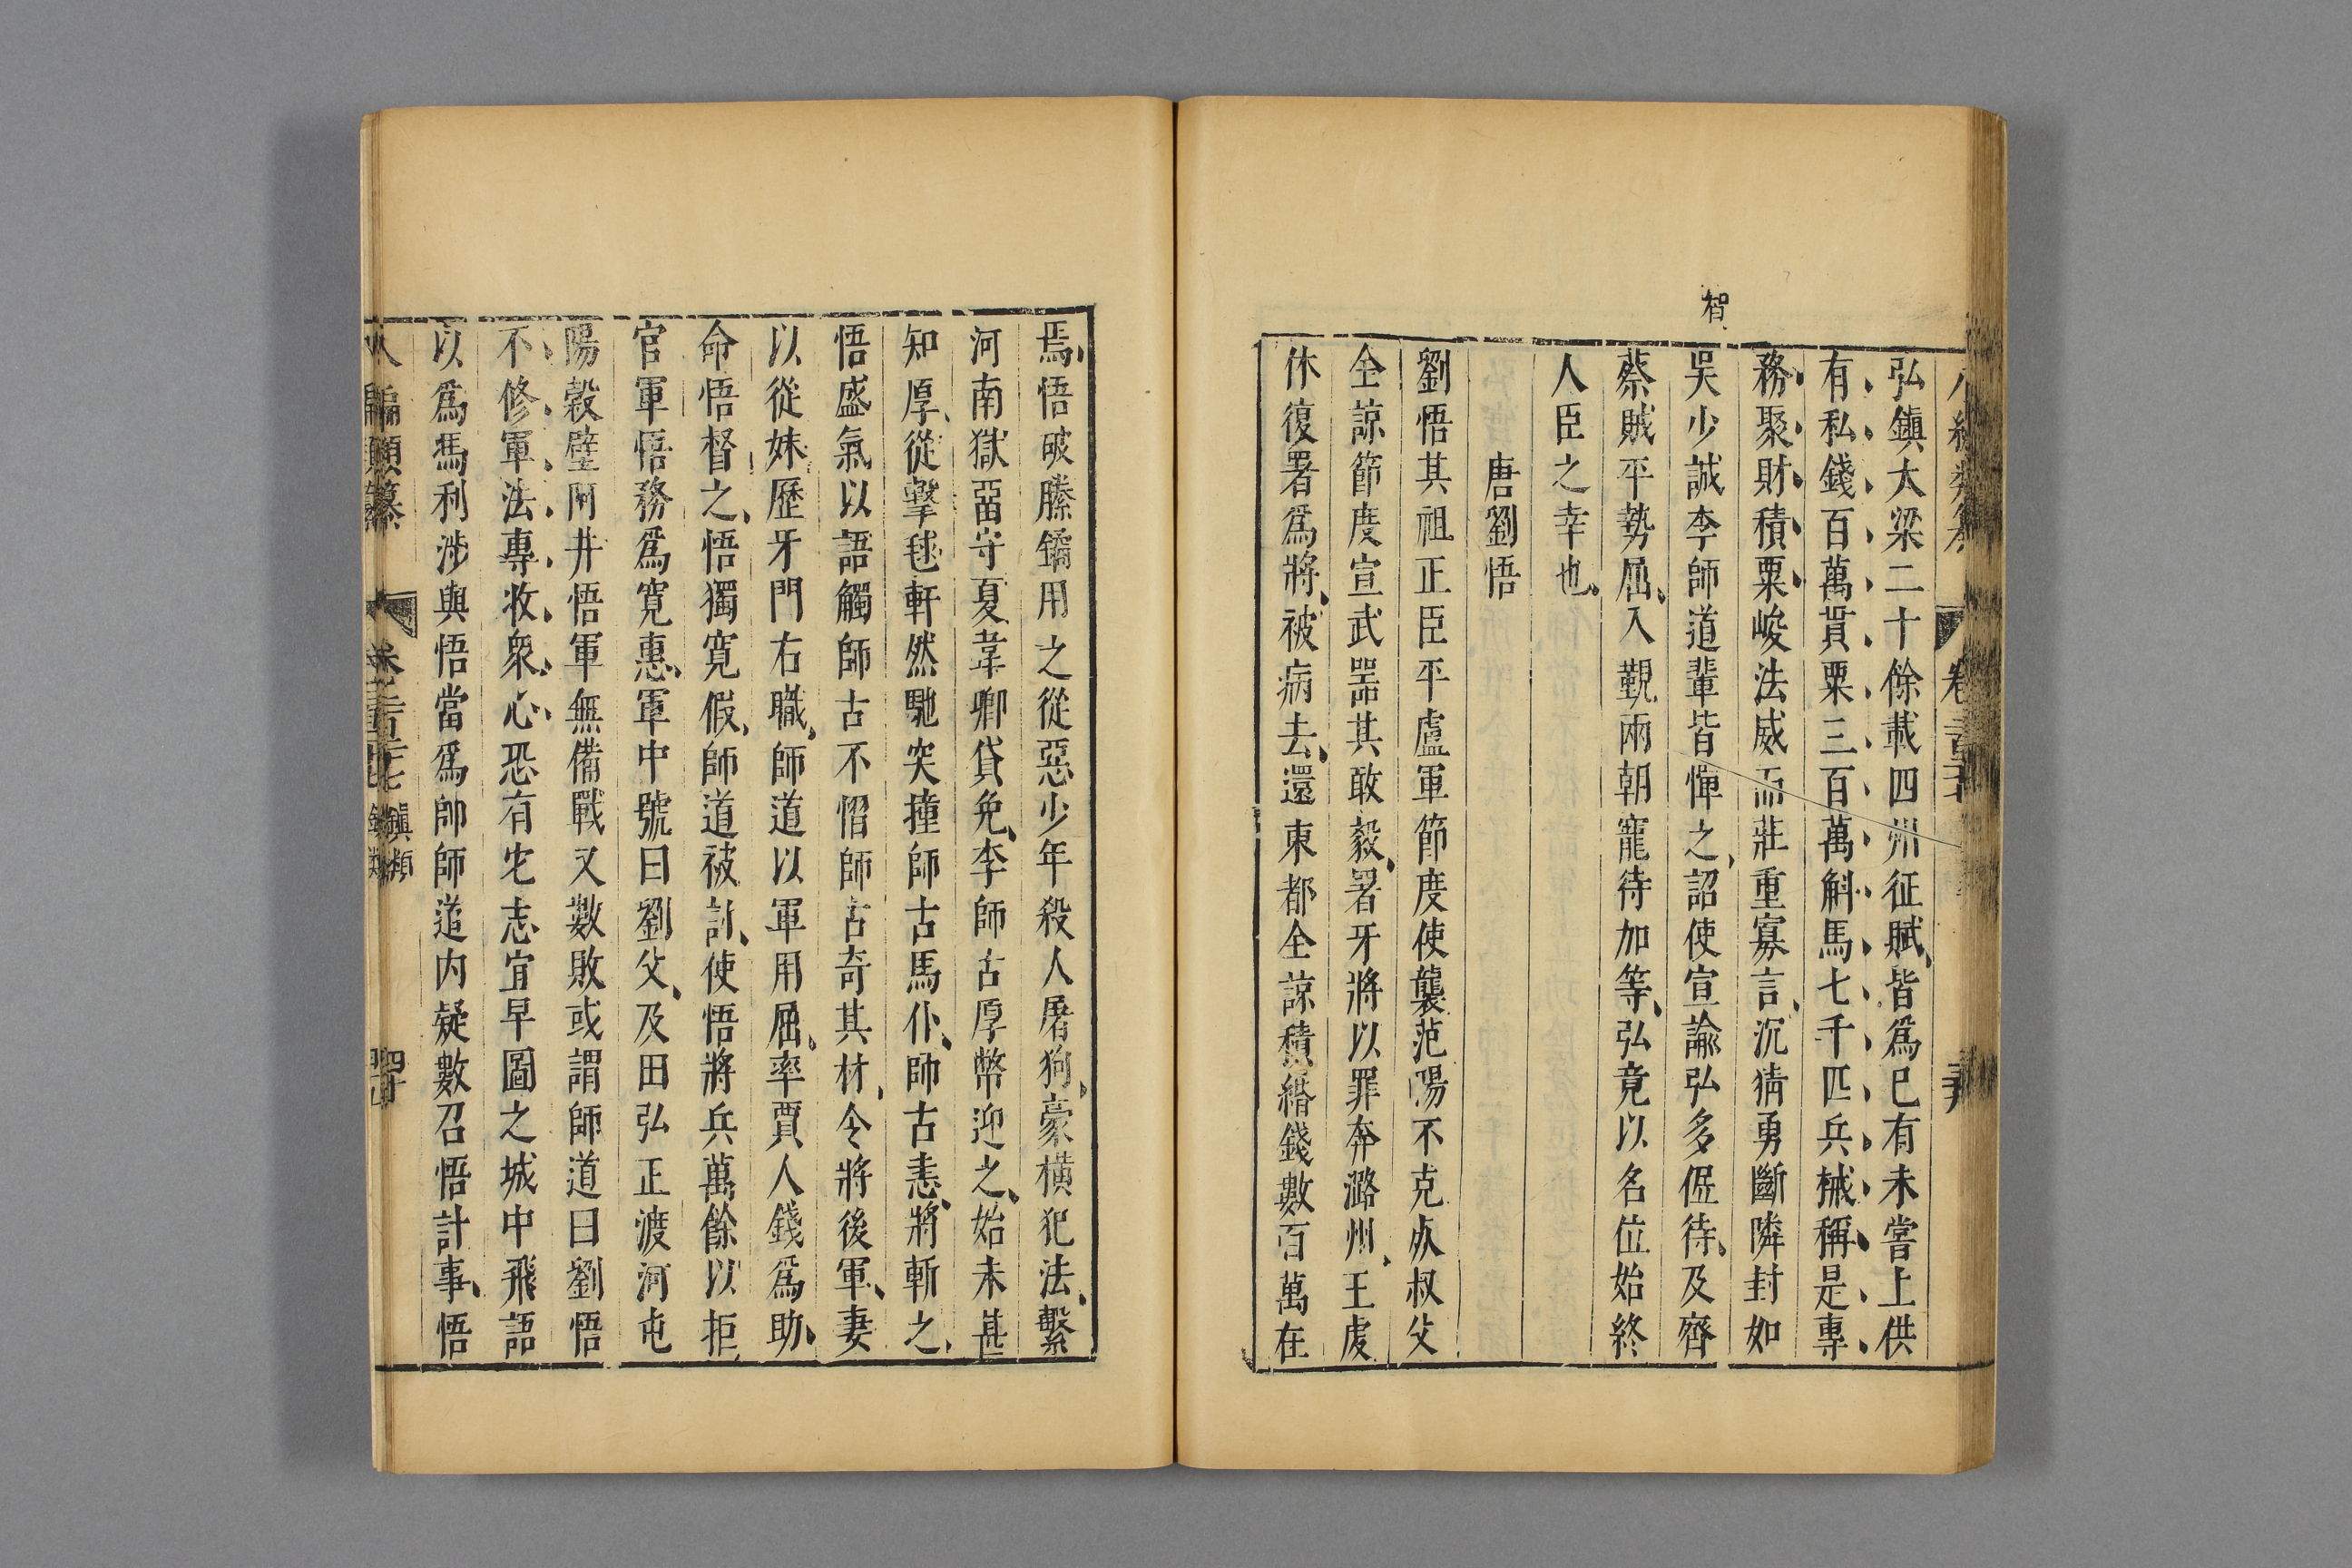 弘鎮大梁二十餘載四州征賦皆爲已有未嘗上供
有私錢百萬貫粟三百萬斛馬七千匹兵械稱是專
務聚財積粟峻法威而莊重寡言沉猜勇斷隣封如
智
吳少誠李師道輩皆憚之詔使宣諭弘多倨待及齊
蔡賊平勢屈入覲兩朝寵待加等弘竟以名位始終
人臣之幸也
唐劉悟
劉悟其祖正臣平盧軍節度使襲范陽不克死叔父
全諒節度宣武噐其敢毅署牙將以罪奔潞州王虔
休復署爲將被病去還東都全諒積緡錢數百萬在
焉悟破縢鐍用之從惡少年殺人屠狗豪橫犯法繫
河南獄畱守夏韋卿貸免李師古厚幣迎之始未甚
知厚從擊毬軒然馳突撞師古馬仆師古恚將斬之
悟盛氣以語觸師古不慴師古奇其材令將後軍妻
以從妹歷牙門右職師道以軍用屈率賈人錢爲助
命悟督之悟獨寛假師道被討使悟將兵萬餘以拒
官軍悟務爲寛惠軍中號曰劉父及田弘正渡河屯
陽穀壁阿井悟軍無備戰又數敗或謂師道曰劉悟
不修軍法專收衆心恐有它志宜早圖之城中飛語
以爲馬利涉與悟當爲帥師道内疑數召悟計事悟
八編類纂 卷 鎮類 四十